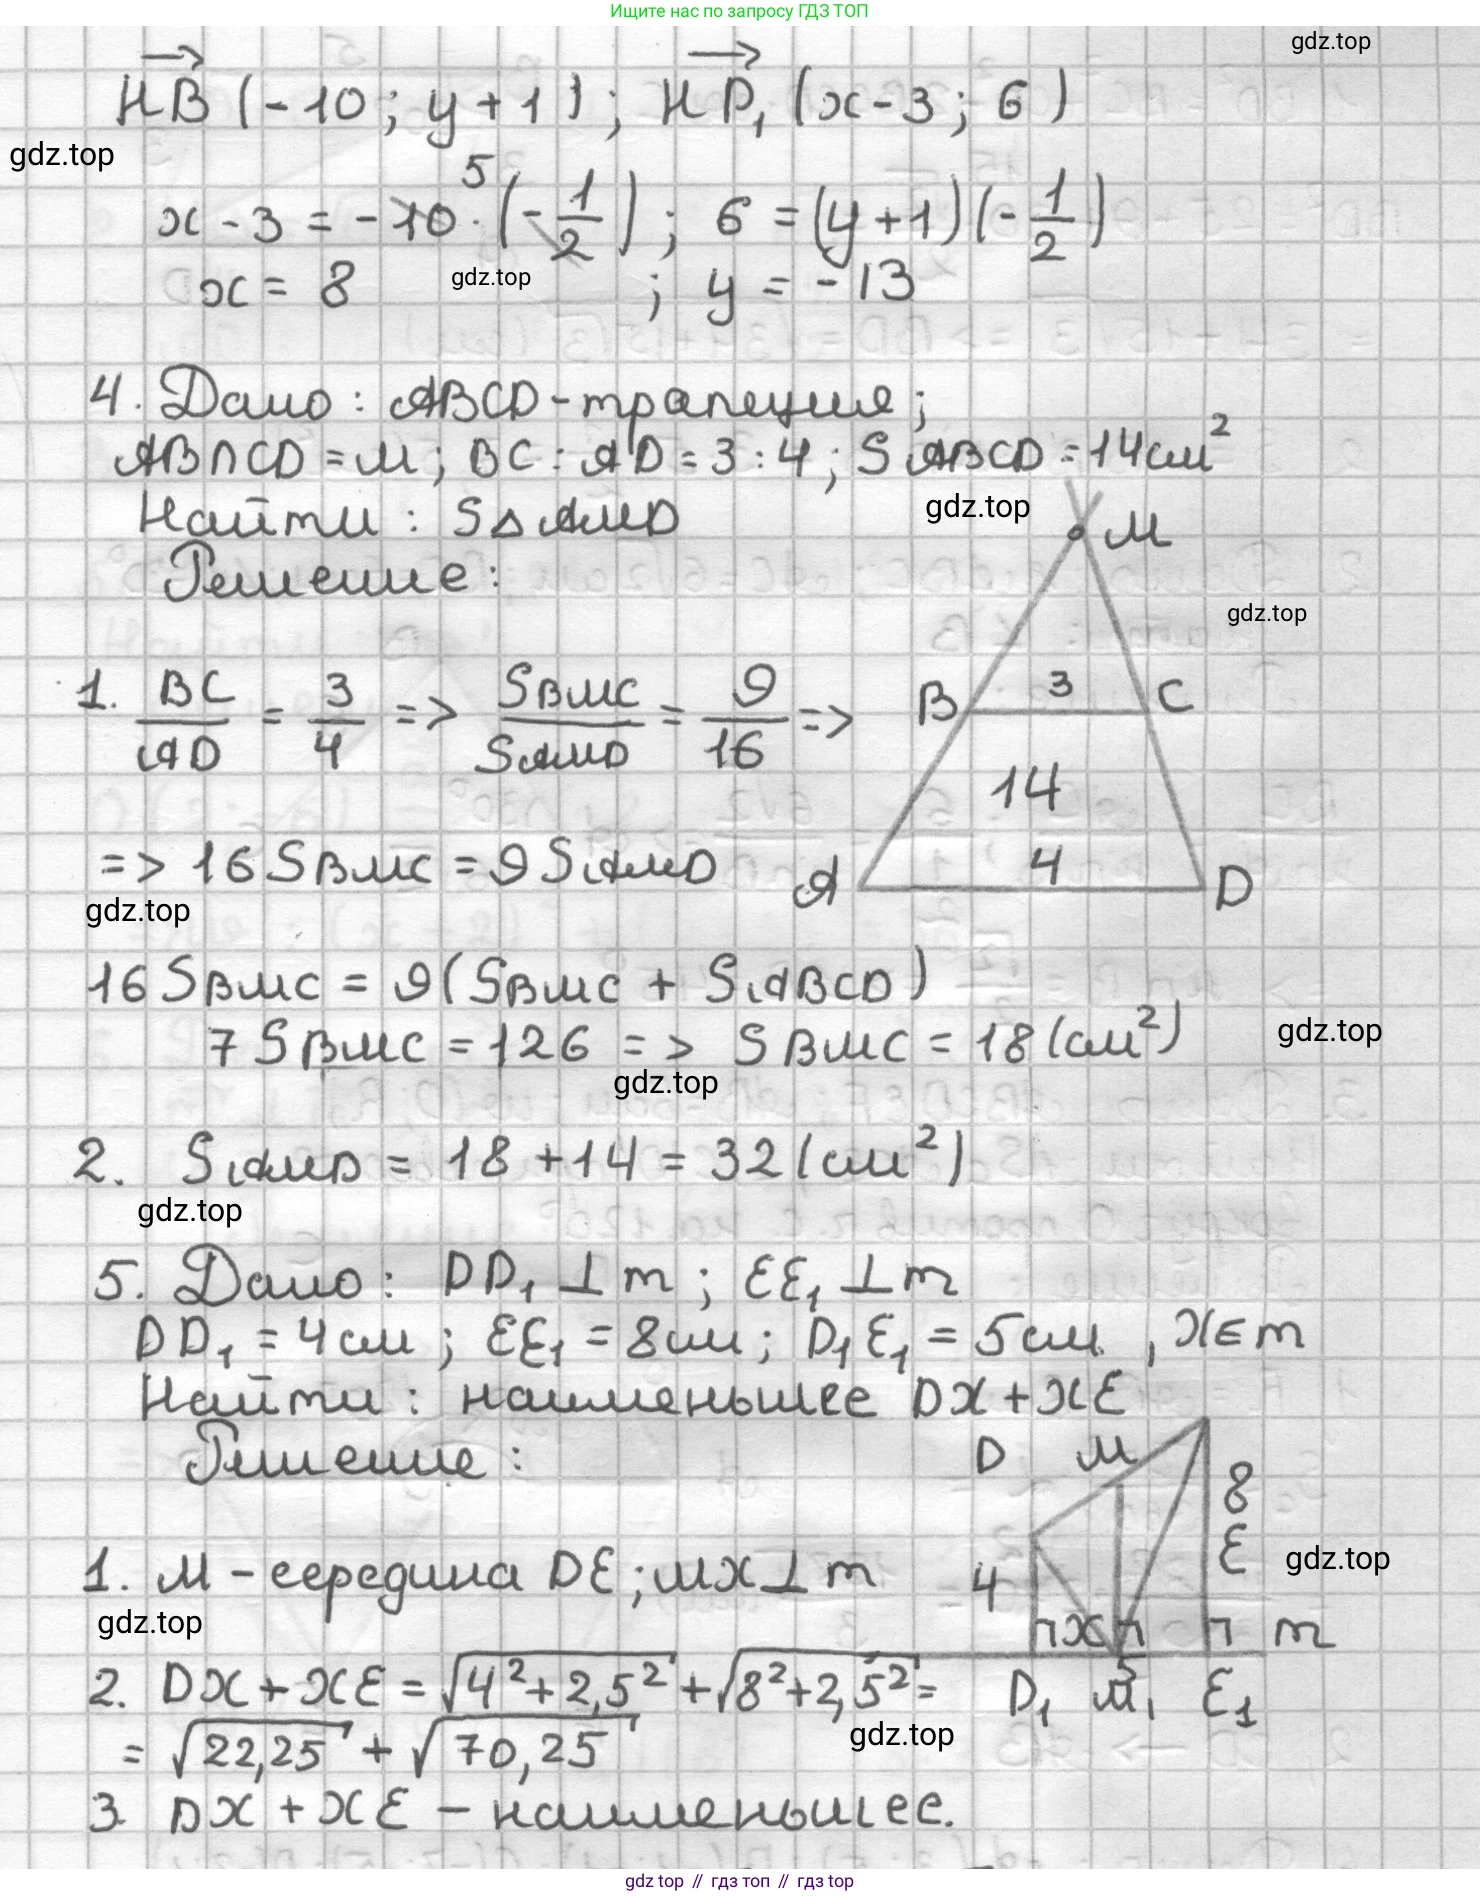 Ищите нас по запросу ГДЗ ТОП
gdz.top
HB (-10; y+1); HD₁ (x-3; 6)
gdz.top
x-3 = -10⁵·(-1/2); 6 = (y+1)(-1/2)
x = 8 ; y = -13
gdz.top
4. Дано: ABCD-трапеция;
AB∩CD=M; BC:AD=3:4; SABCD=14см²
gdz.top
Найти: S△AMD
M
Решение:
gdz.top
1. BC/AD = 3/4 => SBMC/SAMD = 9/16 =>
B 3 C
14
=> 16SBMC = 9SAMD
A 4 D
gdz.top
16SBMC = 9(SBMC + SABCD)
7SBMC = 126 => SBMC = 18(см²)
gdz.top
gdz.top
2. SAMD = 18+14 = 32(см²)
gdz.top
5. Дано: DD₁⊥m; EE₁⊥m
DD₁=4см; EE₁=8см; D₁E₁=5см, X∈m
Найти: наименьшее DX+XE
Решение:
D M
8
E
1. M-середина DE; MX⊥m
4
gdz.top
gdz.top
X m
2. DX+XE = √(4²+2,5²) + √(8²+2,5²) =
5
D₁ M₁ E₁
gdz.top
= √22,25 + √70,25
3. DX+XE – наименьшее.
gdz top // гдз топ // гдз top